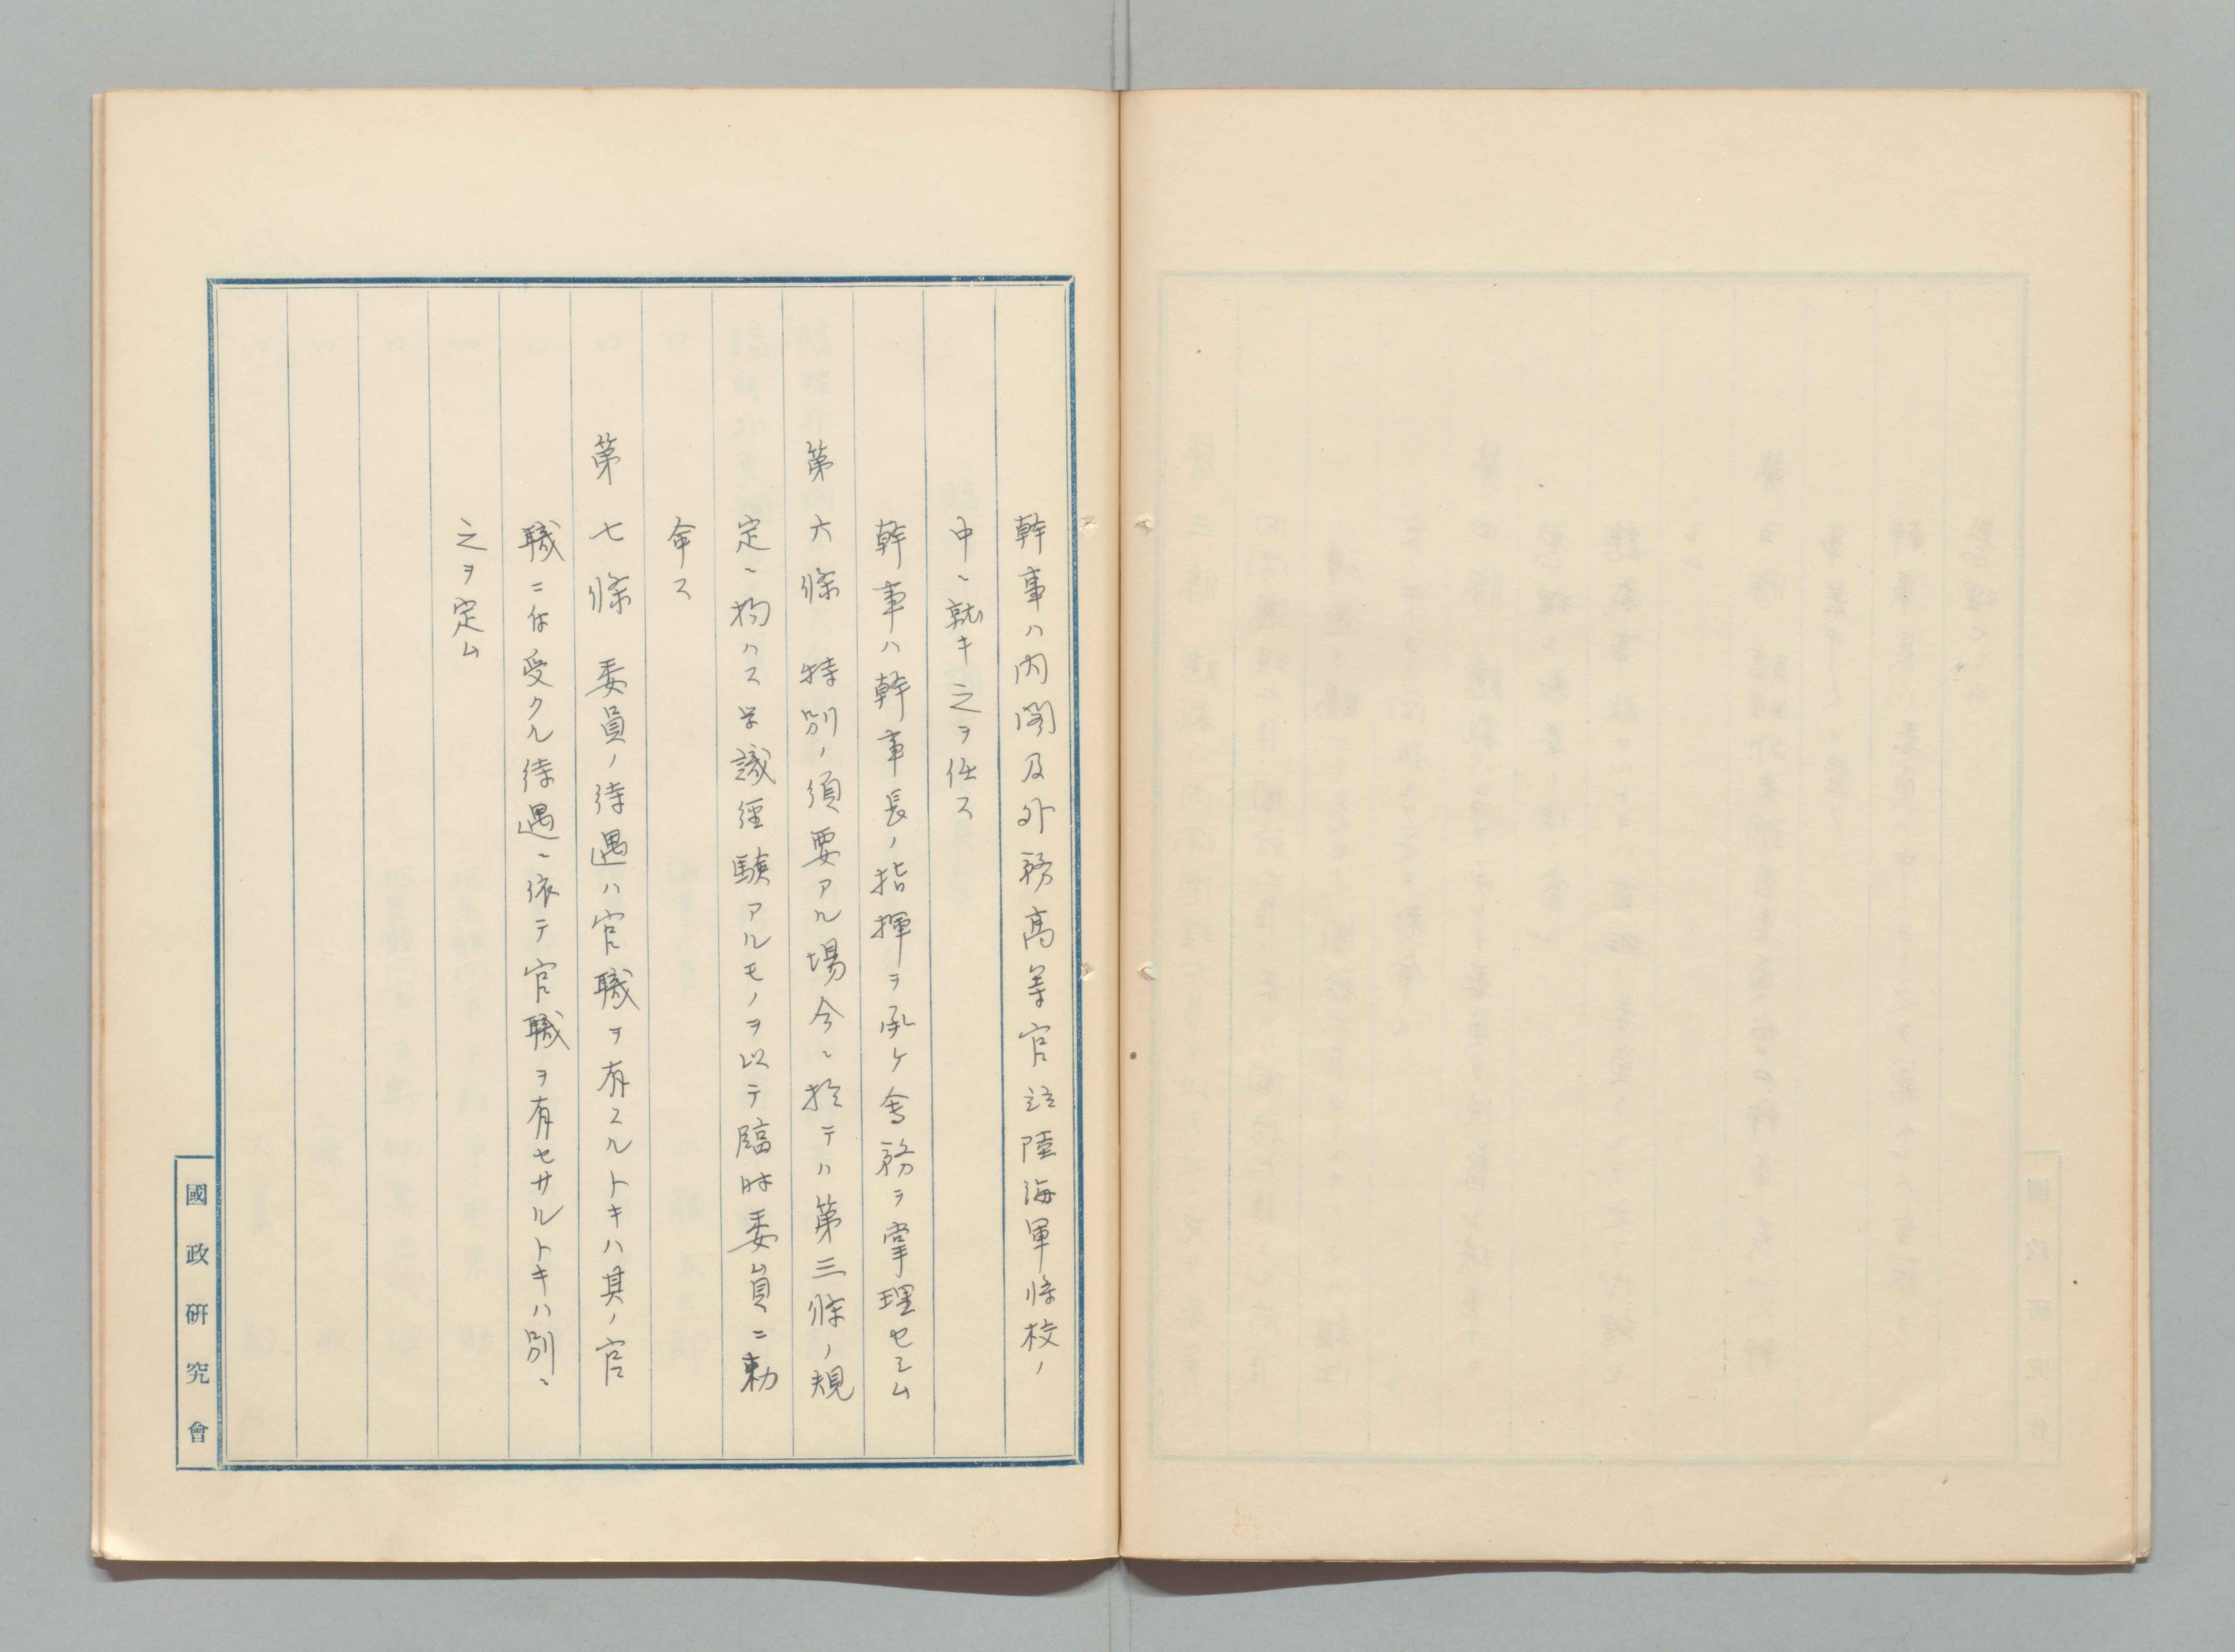 幹事ハ内閣及外務高等官竝陸海軍將校ノ
中ニ就キ之ヲ任ス
幹事ハ幹事長ノ指揮ヲ承ケ會務ヲ掌理セシム
第六條 特別ノ須要アル場合ニ於テハ第三條ノ規
定ニ拘ハス学識経験アルモノヲ以テ臨時委員ニ勅
命ス
第七條 委員ノ待遇ハ官職ヲ有スルトキハ其ノ官
職ニ仍受クル待遇ニ依テ官職ヲ有セサルトキハ別ニ
之ヲ定ム
國政研究會